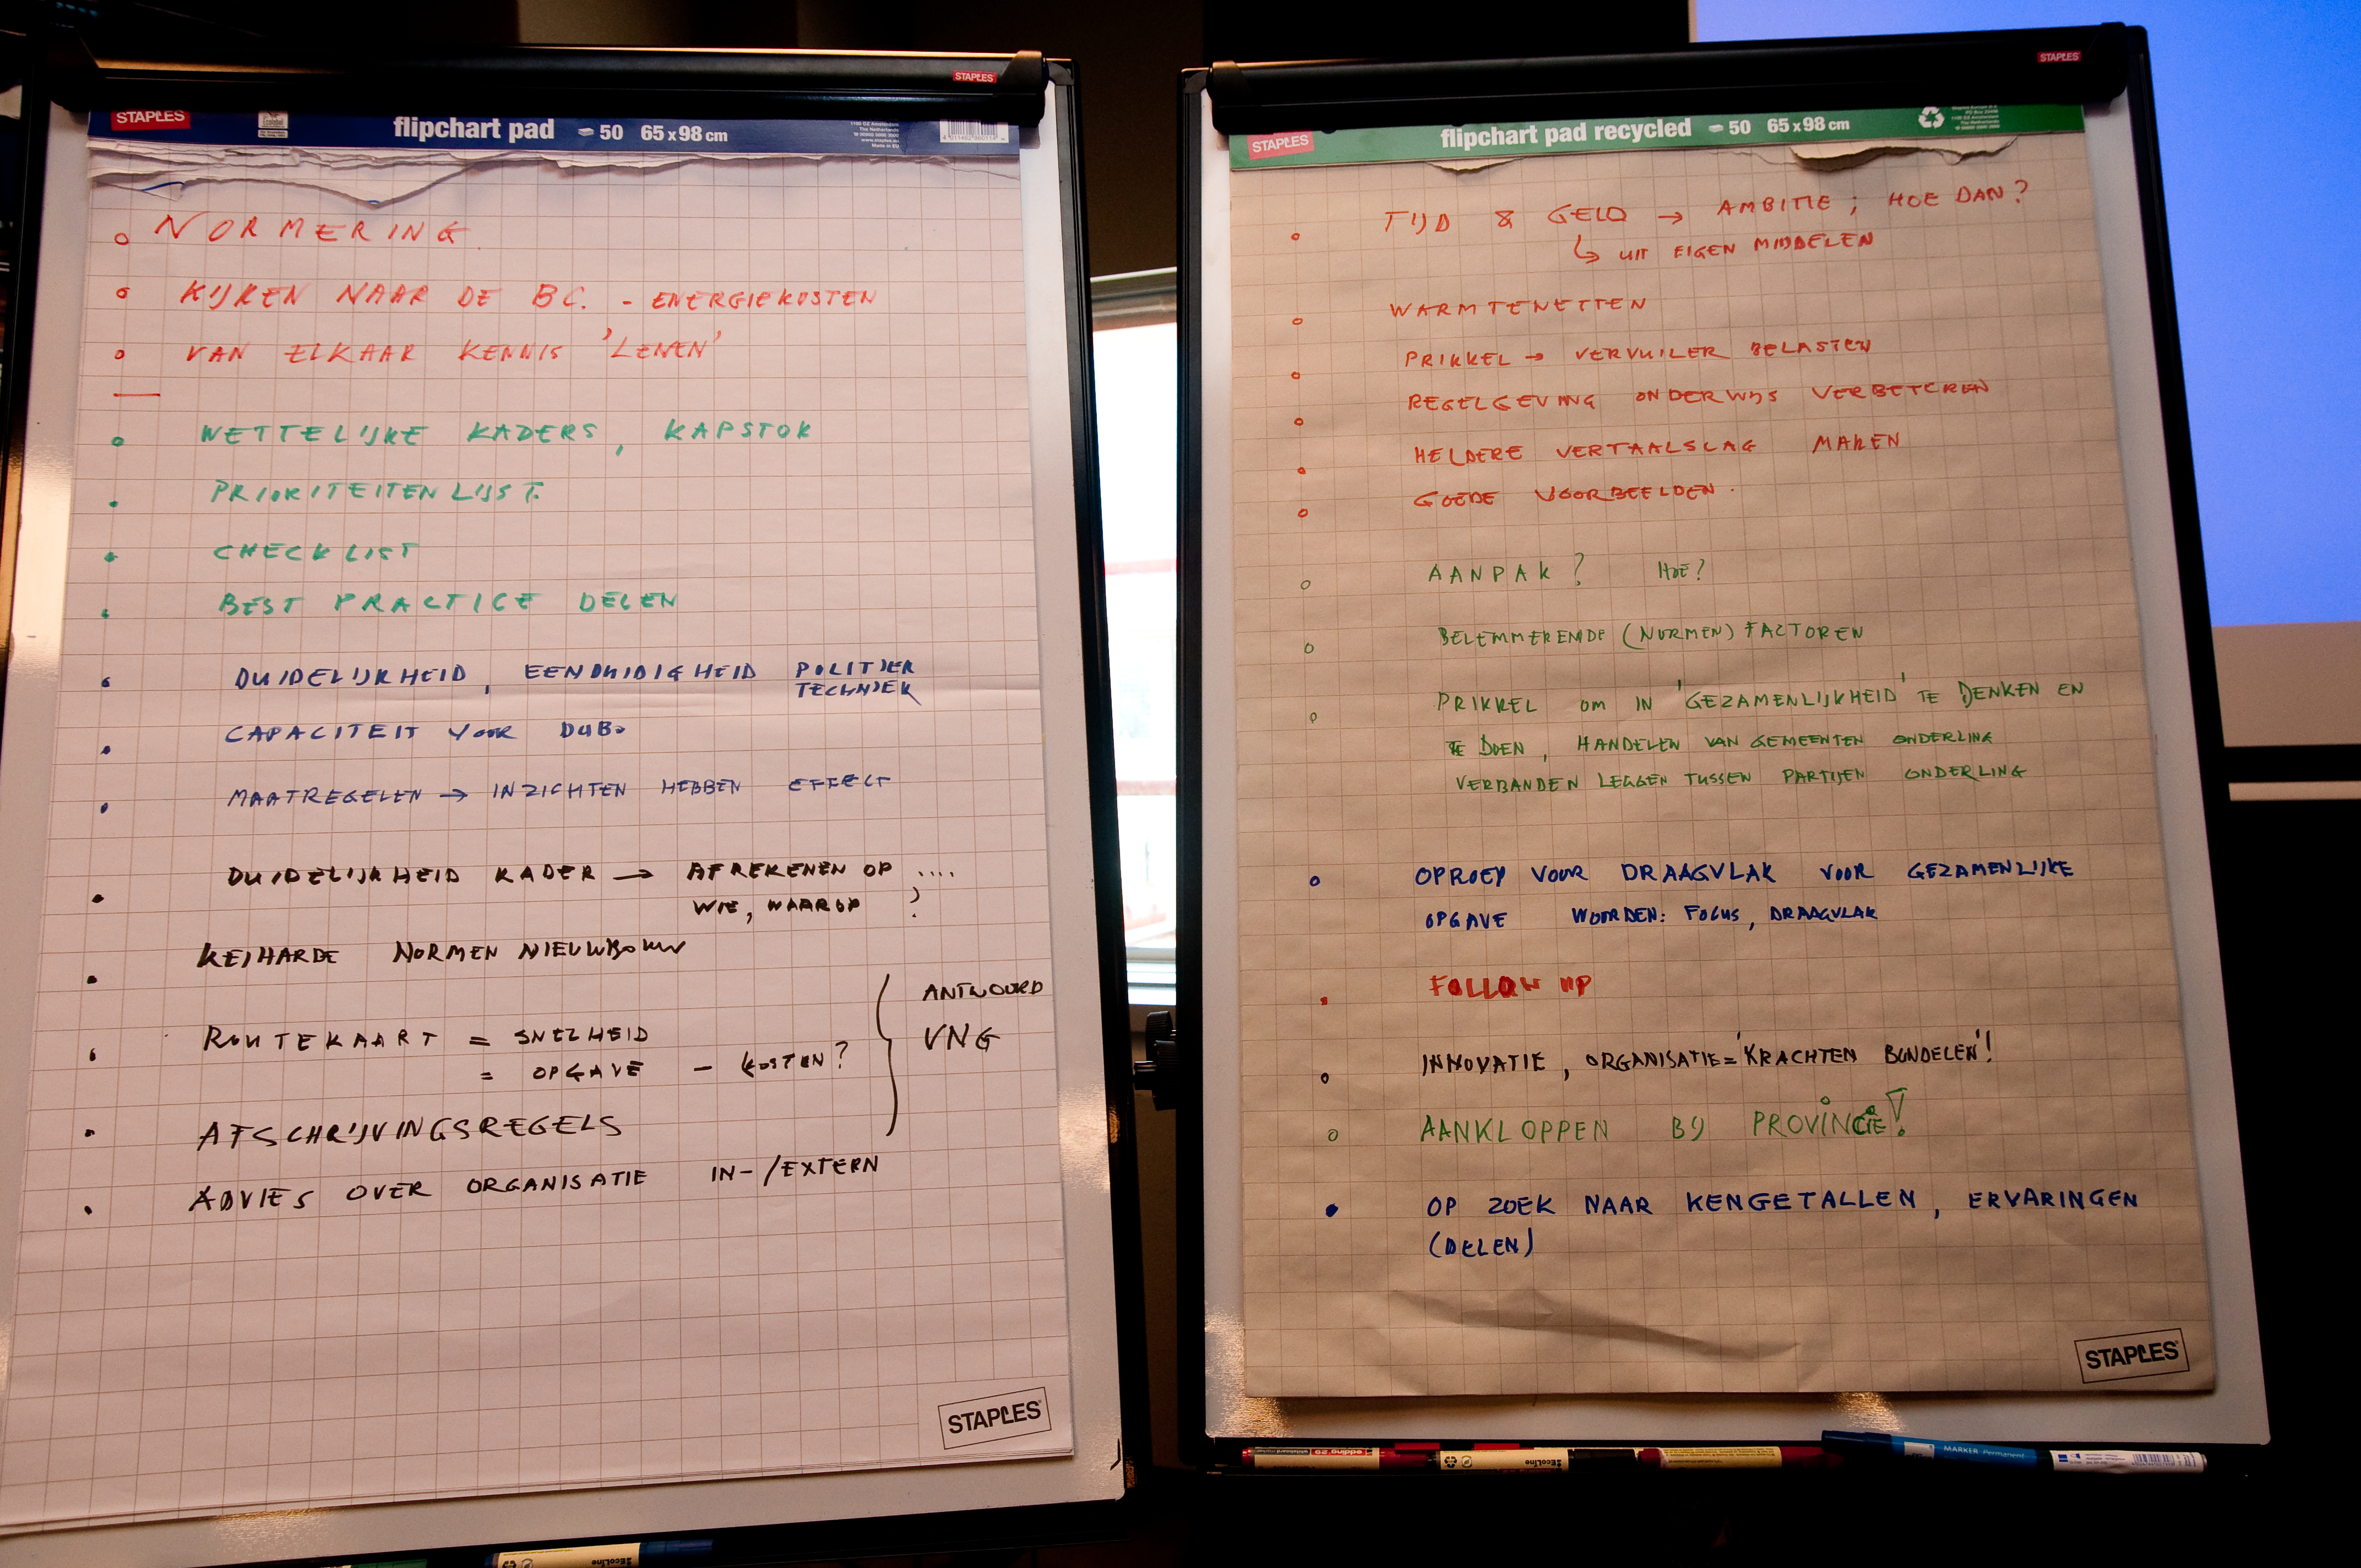 STAPLES
STAPLES
flipchart pad 50 65 x 98 cm
NORMERING
KIJKEN NAAR DE BC. - ENERGIEKOSTEN
VAN ELKAAR KENNIS 'LENEN'
WETTELIJKE KADERS, KAPSTOK
PRIORITEITENLIJST.
CHECKLIST
BEST PRACTICE DELEN
DUIDELIJKHEID, EENDUIDIGHEID POLITIEK
TECHNIEK
CAPACITEIT VOOR DUBO
MAATREGELEN → INZICHTEN HEBBEN EFFECT
DUIDELIJKHEID KADER → AFREKENEN OP ....
WIE, WAAROP ?
KEIHARDE NORMEN NIEUWBOUW
ROUTEKAART = SNELHEID
= OPGAVE - KOSTEN?
ANTWOORD
VNG
AFSCHRIJVINGSREGELS
ADVIES OVER ORGANISATIE IN-/EXTERN
STAPLES
STAPLES
STAPLES
flipchart pad recycled 50 65 x 98 cm
TIJD & GELD → AMBITIE ; HOE DAN?
↳ UIT EIGEN MIDDELEN
WARMTENETTEN
PRIKKEL → VERVUILER BELASTEN
REGELGEVING ONDERWIJS VERBETEREN
HELDERE VERTAALSLAG MAKEN
GOEDE VOORBEELDEN.
AANPAK? HOE?
BELEMMERENDE (NORMEN) FACTOREN
PRIKKEL OM IN 'GEZAMENLIJKHEID' TE DENKEN EN
TE DOEN, HANDELEN VAN GEMEENTEN ONDERLING
VERBANDEN LEGGEN TUSSEN PARTIJEN ONDERLING
OPROEP VOOR DRAAGVLAK VOOR GEZAMENLIJKE
OPGAVE WOORDEN: FOCUS, DRAAGVLAK
FOLLOW UP
INNOVATIE, ORGANISATIE = 'KRACHTEN BUNDELEN'!
AANKLOPPEN BIJ PROVINCIE!
OP ZOEK NAAR KENGETALLEN, ERVARINGEN
(DELEN)
STAPLES
MARKER Permanent